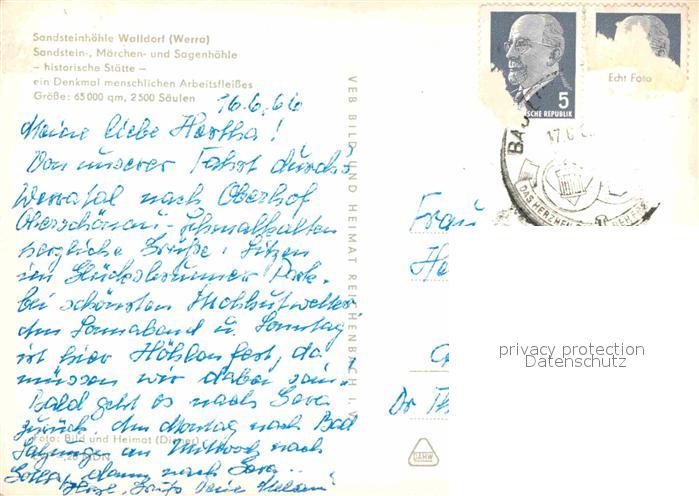 Sandsteinhöhle Walldorf (Werra)
Sandstein-, Märchen- und Sagenhöhle
– historische Stätte –
ein Denkmal menschlichen Arbeitsfleißes
Größe: 65 000 qm, 2 500 Säulen
16.6.66
Meine liebe Hertha!
Von unserer Fahrt durchs
Werratal nach Oberhof
Oberschönau - Schmalkalden
herzliche Grüße! Sitzen
im Glücksbrunner Park
bei schönsten
den Sonnabend u. Sonntag
ist hier Höhlenfest, da
müssen wir dabei sein.
Bald geht es nach Gera
zurück. Am Montag nach Bad
Salzungen am Mittwoch nach
dann nach Gera
Deine
Foto: Bild und Heimat (Diener)
VEB BILD UND HEIMAT REICHENBACH I. V.
5
SCHE REPUBLIK
Echt Foto
BAD
17.6
DAS HERZHEIL
Frau
He
Dr Th
privacy protection
Datenschutz